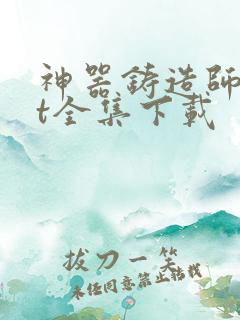 神器鋳造師
t全集下載
拔刀一笑
未经同意禁止转载